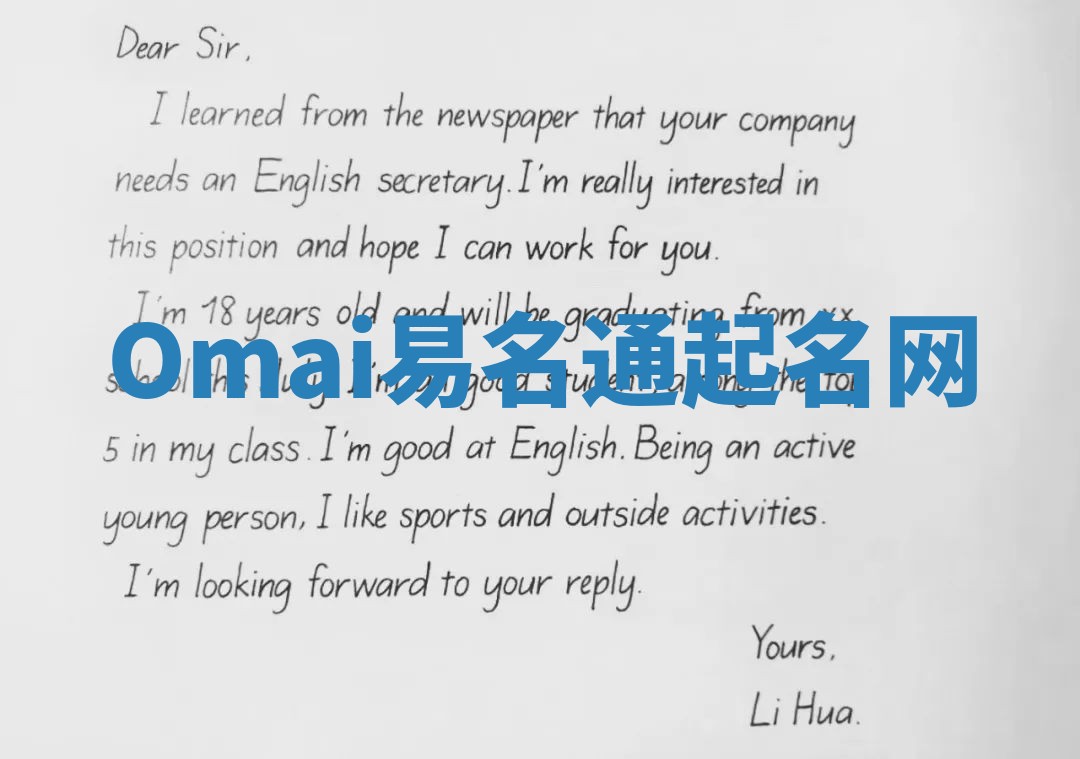 Dear Sir,
I learned from the newspaper that your company
needs an English secretary. I'm really interested in
this position and hope I can work for you.
I'm 18 years old and will be graduating from xx
Omai易名通起名网
school this July. I'm a good student, among the top
5 in my class. I'm good at English. Being an active
young person, I like sports and outside activities.
I'm looking forward to your reply.
Yours,
Li Hua.